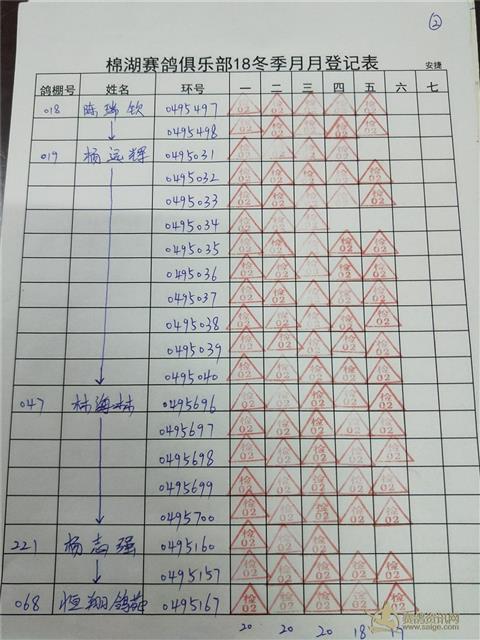 ②
棉湖赛鸽俱乐部18冬季月月登记表
安捷
鸽棚号 姓名 环号 一 二 三 四 五 六 七
018 陈瑞钦 0495497 检02 检02 检02 检02 检02
0495498 检02 检02 检02 检02 检02
019 杨远辉 0495031 检02 检02 检02 检02
0495032 检02 检02 检02 检02 检02
0495033 检02 检02 检02 检02 检02
0495034 检02 检02 检02
0495035 检02 检02 检02 检02 检02
0495036 检02 检02 检02 检02 检02
0495037 检02 检02 检02 检02 检02
0495038 检02 检02 检02 检02 检02
0495039 检02 检02 检02 检02 检02
0495040 检02 检02 检02 检02 检02
047 林海林 0495696 检02 检02 检02 检02 检02
0495697 检02 检02 检02 检02 检02
0495698 检02 检02 检02 检02 检02
0495699 检02 检02 检02 检02 检02
0495700 检02 检02 检02 检02 检02
221 杨志强 0495160 检02 检02 检02
0495157 检02 检02 检02 检02 检02
068 恒翔鸽 0495167 检02 检02 检02 检02 检02
20 20 20 18
赛鸽资讯网
www.saige.com